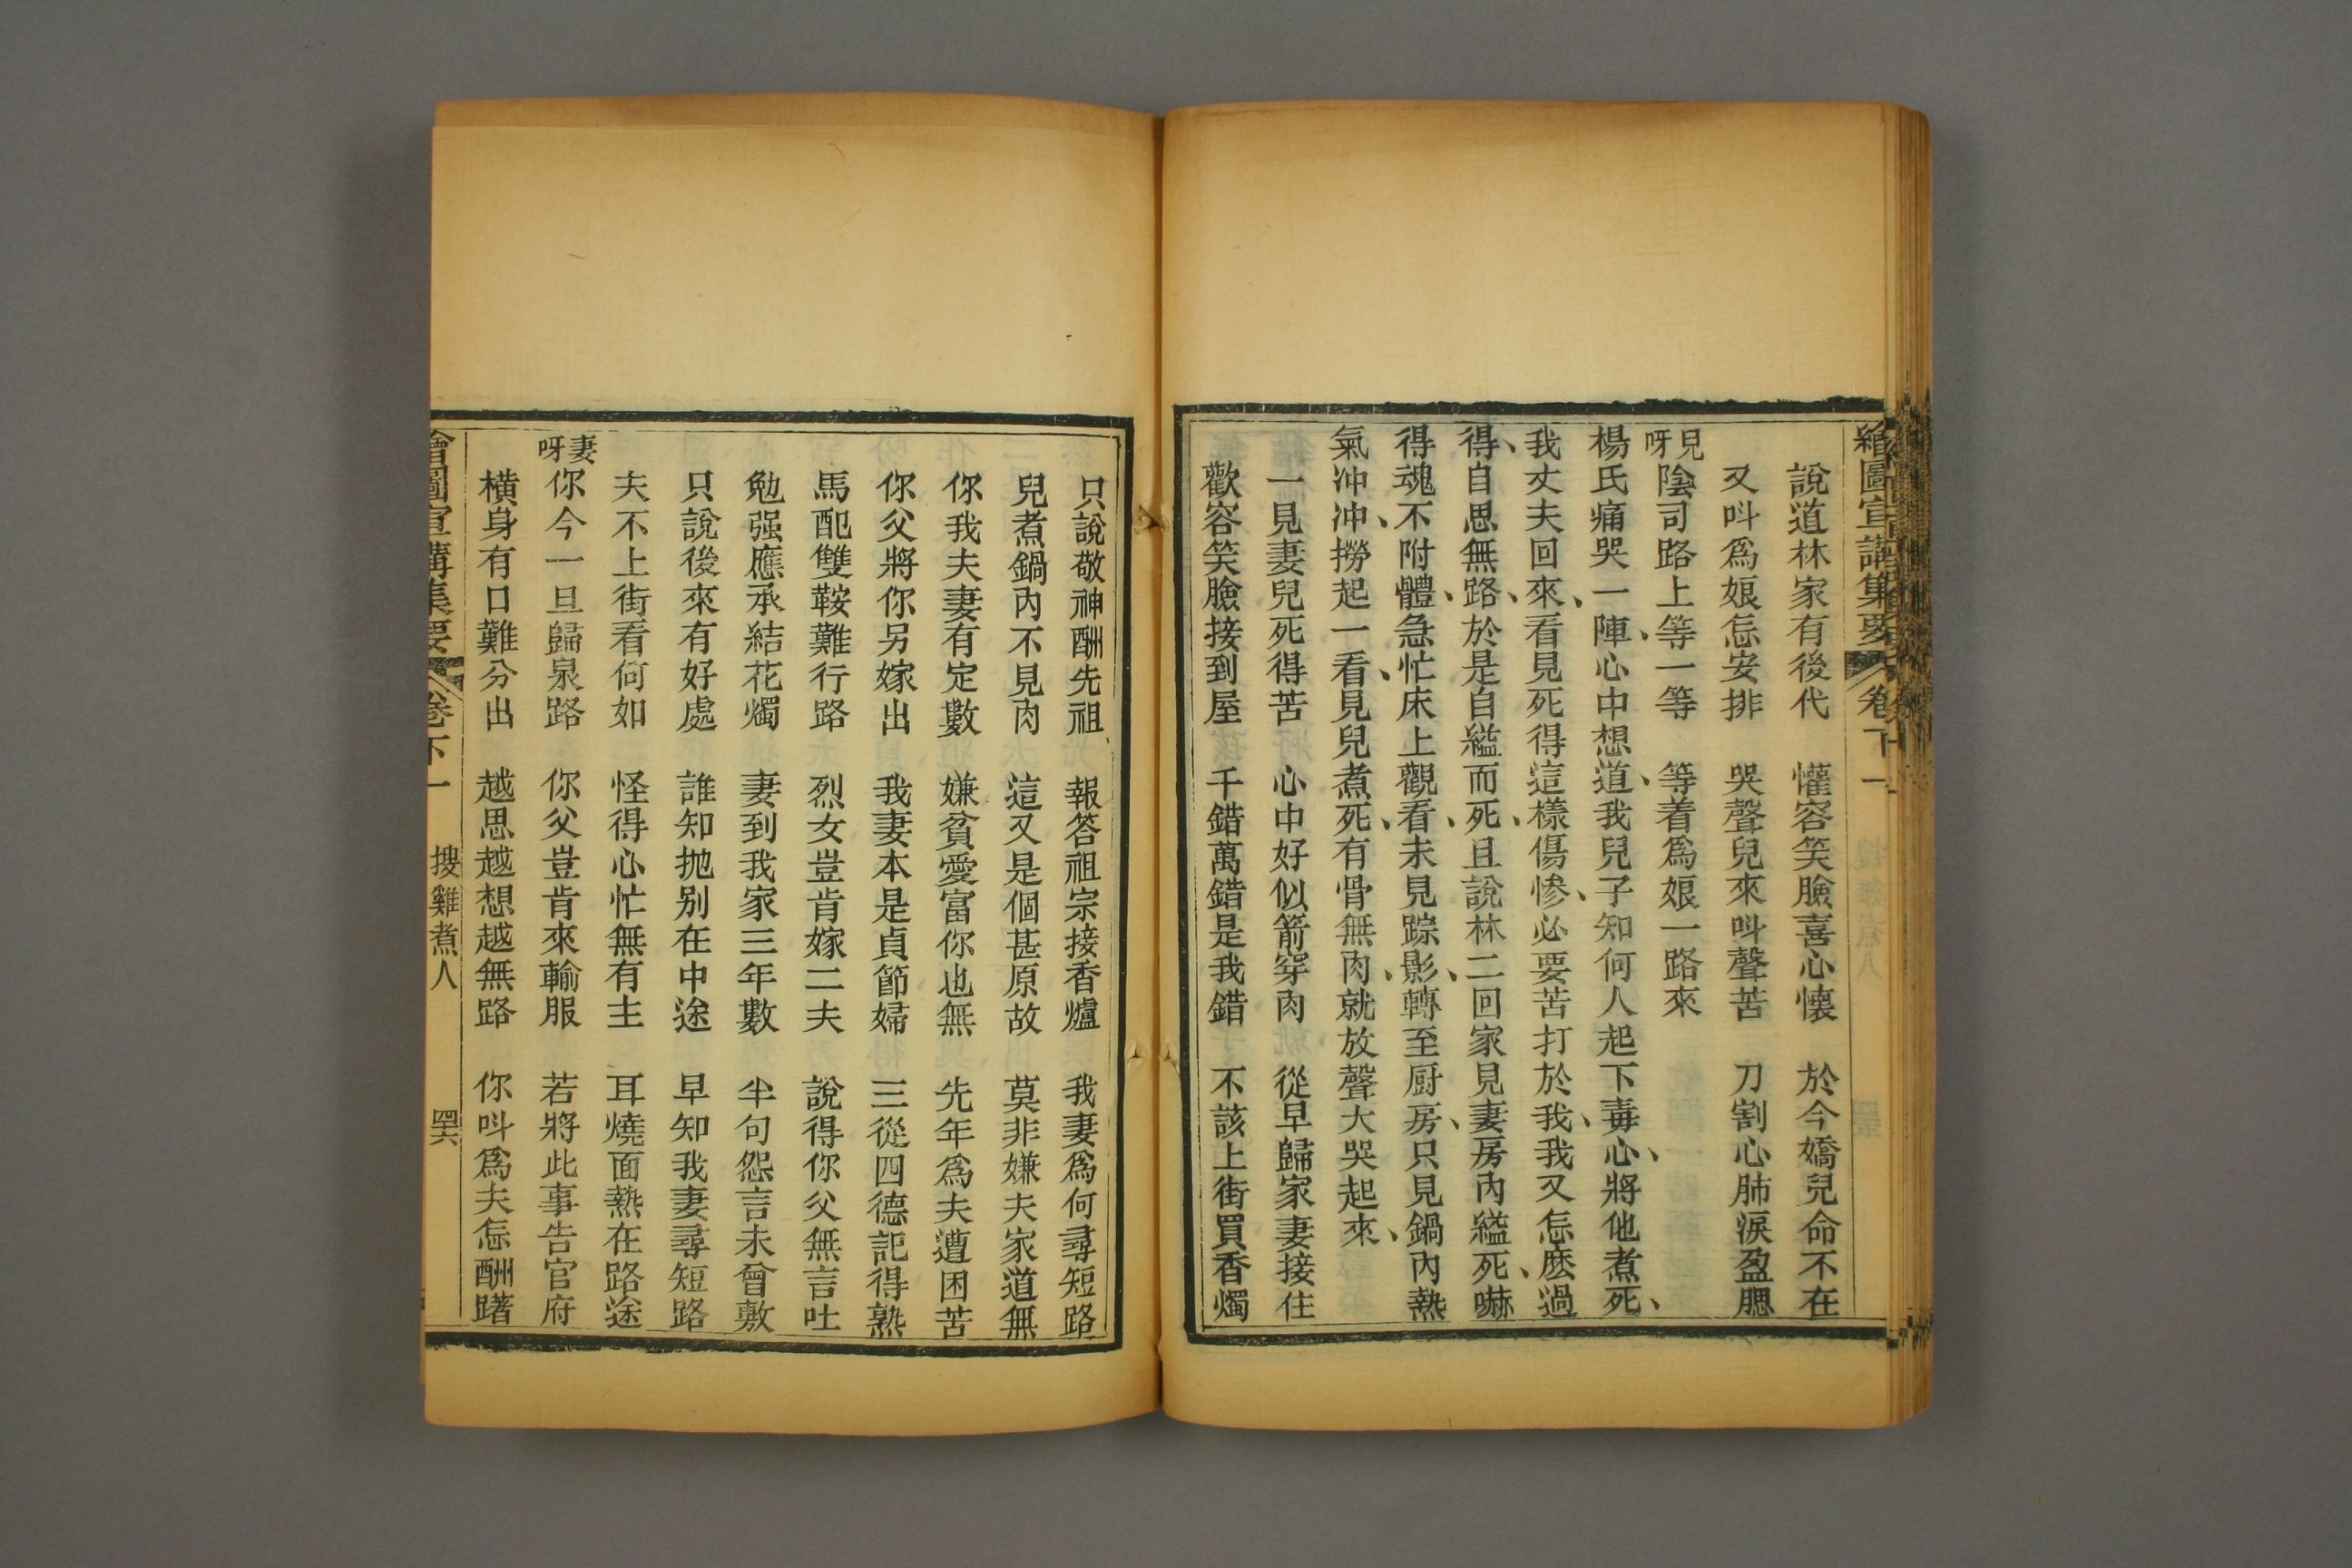 繪圖宣講集要 卷下一
說道林家有後代 懽容笑臉喜心懷 於今嬌兒命不在
又呌爲娘怎安排 哭聲兒來呌聲苦 刀割心肺淚盈腮
兒呀陰司路上等一等 等着爲娘一路來
楊氏痛哭一陣、心中想道、我兒子知何人起下毒心、將他煮死、
我丈夫回來、看見死得這樣傷惨、必要苦打於我、我又怎麽過
得、自思無路、於是自縊而死、且說林二回家見妻房內縊死、嚇
得魂不附體、急忙床上觀看、未見踪影、轉至厨房、只見鍋內熱
氣冲冲、撈起一看、見兒煮死、有骨無肉、就放聲大哭起來、
一見妻兒死得苦 心中好似箭穿肉 從早歸家妻接住
歡容笑臉接到屋 千錯萬錯是我錯 不該上街買香燭
只說敬神酬先祖 報答祖宗接香爐 我妻爲何尋短路
兒煮鍋內不見肉 這又是個甚原故 莫非嫌夫家道無
你我夫妻有定數 嫌貧愛富你也無 先年爲夫遭困苦
你父將你另嫁出 我妻本是貞節婦 三從四德記得熟
馬配雙鞍難行路 烈女豈肯嫁二夫 說得你父無言吐
勉强應承結花燭 妻到我家三年數 半句怨言未曾敷
只說後來有好處 誰知抛别在中途 早知我妻尋短路
夫不上街看何如 怪得心忙無有主 耳燒面熱在路途
妻呀你今一旦歸泉路 你父豈肯來輸服 若將此事告官府
橫身有口難分出 越思越想越無路 你呌爲夫怎酬躇
繪圖宣講集要 卷下一 搜雞煮人 四六